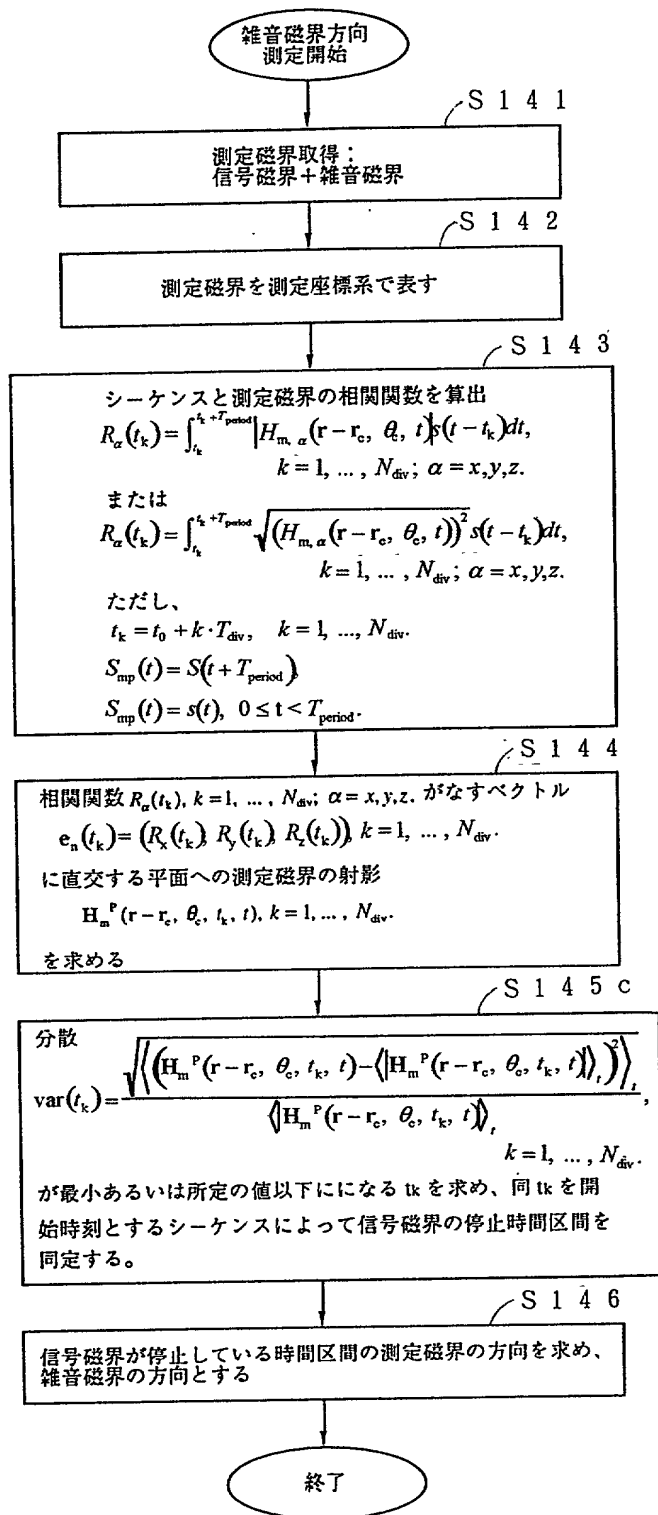 雑音磁界方向
測定開始
S141
測定磁界取得：
信号磁界＋雑音磁界
S142
測定磁界を測定座標系で表す
S143
シーケンスと測定磁界の相関関数を算出
R_α(t_k)=∫_{t_k}^{t_k+T_period}|H_{m,α}(r−r_c, θ_c, t)|s(t−t_k)dt,
k=1, ..., N_div; α=x,y,z.
または
R_α(t_k)=∫_{t_k}^{t_k+T_period}√((H_{m,α}(r−r_c, θ_c, t))^2)s(t−t_k)dt,
k=1, ..., N_div; α=x,y,z.
ただし、
t_k=t_0+k·T_div, k=1, ..., N_div.
S_mp(t)=S(t+T_period),
S_mp(t)=s(t), 0≤t<T_period.
S144
相関関数 R_α(t_k), k=1, ..., N_div; α=x,y,z. がなすベクトル
e_n(t_k)=(R_x(t_k), R_y(t_k), R_z(t_k)), k=1, ..., N_div.
に直交する平面への測定磁界の射影
H_m^P(r−r_c, θ_c, t_k, t), k=1, ..., N_div.
を求める
S145c
分散
var(t_k)=√⟨(H_m^P(r−r_c, θ_c, t_k, t)−⟨|H_m^P(r−r_c, θ_c, t_k, t)|⟩_t)^2⟩_t/⟨|H_m^P(r−r_c, θ_c, t_k, t)|⟩_t,
k=1, ..., N_div.
が最小あるいは所定の値以下にになる tk を求め、同 tk を開
始時刻とするシーケンスによって信号磁界の停止時間区間を
同定する。
S146
信号磁界が停止している時間区間の測定磁界の方向を求め、
雑音磁界の方向とする
終了